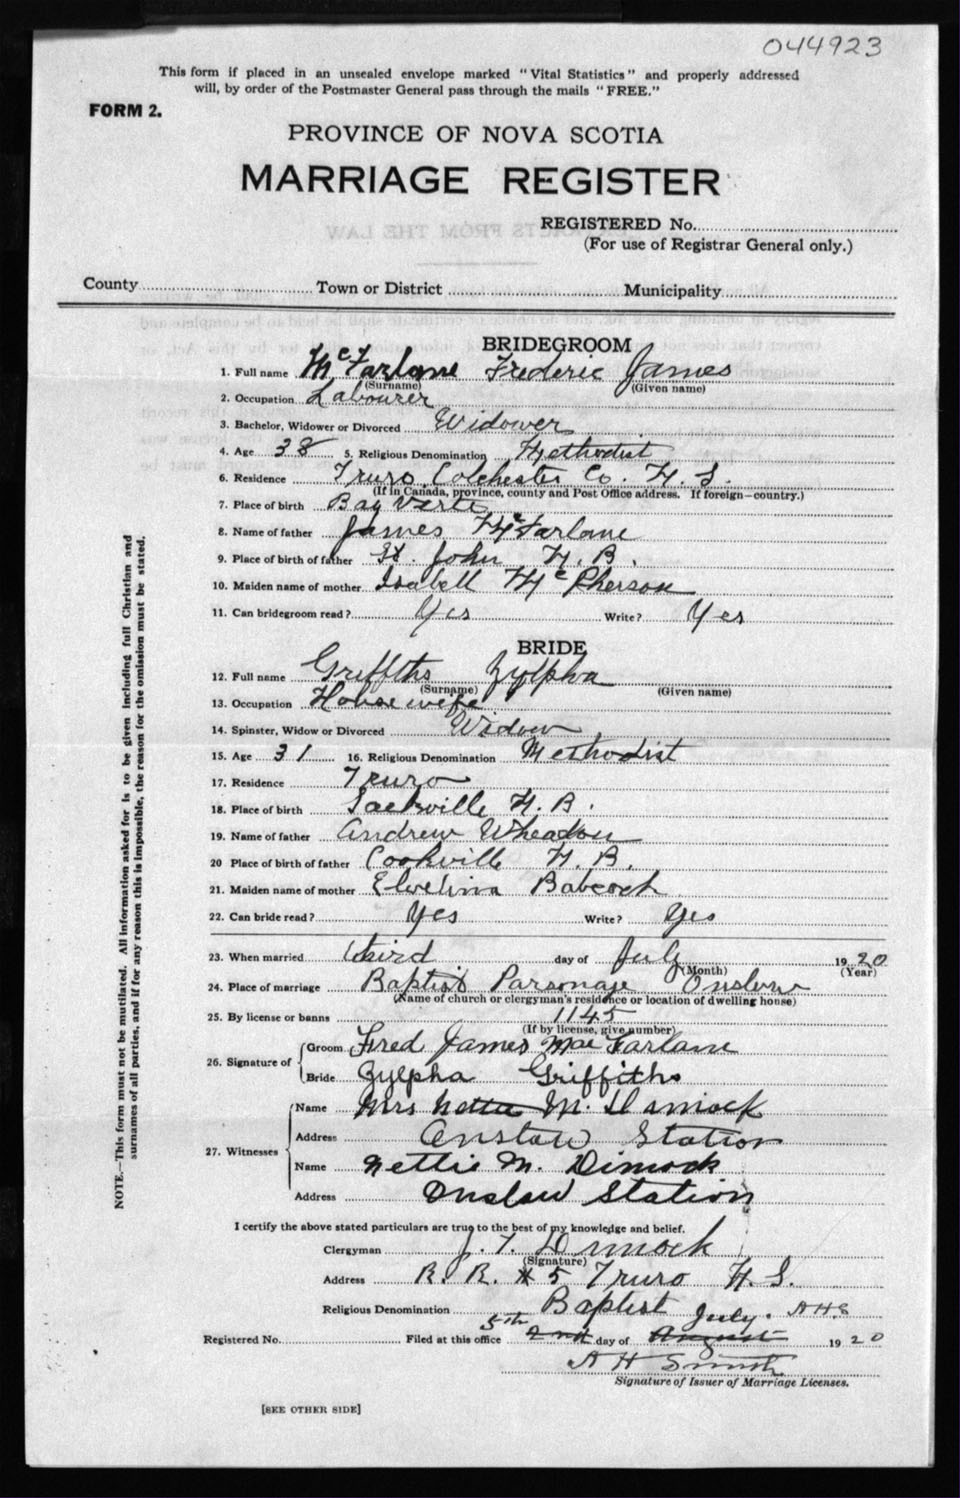 044923
This form if placed in an unsealed envelope marked "Vital Statistics" and properly addressed
will, by order of the Postmaster General pass through the mails "FREE."
FORM 2.
PROVINCE OF NOVA SCOTIA
MARRIAGE REGISTER
REGISTERED No.
(For use of Registrar General only.)
County Town or District Municipality
BRIDEGROOM
1. Full name McFarlane Frederic James
(Surname) (Given name)
2. Occupation Labourer
3. Bachelor, Widower or Divorced Widower
4. Age 38 5. Religious Denomination Methodist
6. Residence Truro Colchester Co. N. S.
(If in Canada, province, county and Post Office address. If foreign—country.)
7. Place of birth Bay Verte
8. Name of father James McFarlane
9. Place of birth of father St. John N. B.
10. Maiden name of mother Isabell McPherson
11. Can bridegroom read? Yes Write? Yes
BRIDE
12. Full name Griffiths Zylpha
(Surname) (Given name)
13. Occupation Housewife
14. Spinster, Widow or Divorced Widow
15. Age 31 16. Religious Denomination Methodist
17. Residence Truro
18. Place of birth Sackville N. B.
19. Name of father Andrew Wheadon
20 Place of birth of father Cookville N. B.
21. Maiden name of mother Elvelina Babcock
22. Can bride read? Yes Write? Yes
23. When married third day of July 1920
(Month) (Year)
24. Place of marriage Baptist Parsonage Onslow
(Name of church or clergyman's residence or location of dwelling house)
25. By license or banns 1145
(If by license, give number)
26. Signature of
Groom Fred James MacFarlane
Bride Zylpha Griffiths
27. Witnesses
Name Mrs Nettie M. Dimock
Address Onslow Station
Name Nettie M. Dimock
Address Onslow Station
I certify the above stated particulars are true to the best of my knowledge and belief.
Clergyman J. T. Dimock
(Signature)
Address R. R. # 5 Truro N. S.
Religious Denomination Baptist
5th July. A H S
Registered No. Filed at this office 2nd day of August 1920
A H Smith
Signature of Issuer of Marriage Licenses.
[SEE OTHER SIDE]
NOTE.—This form must not be mutilated. All information asked for is to be given including full Christian and
surnames of all parties, and if for any reason this is impossible, the reason for the omission must be stated.